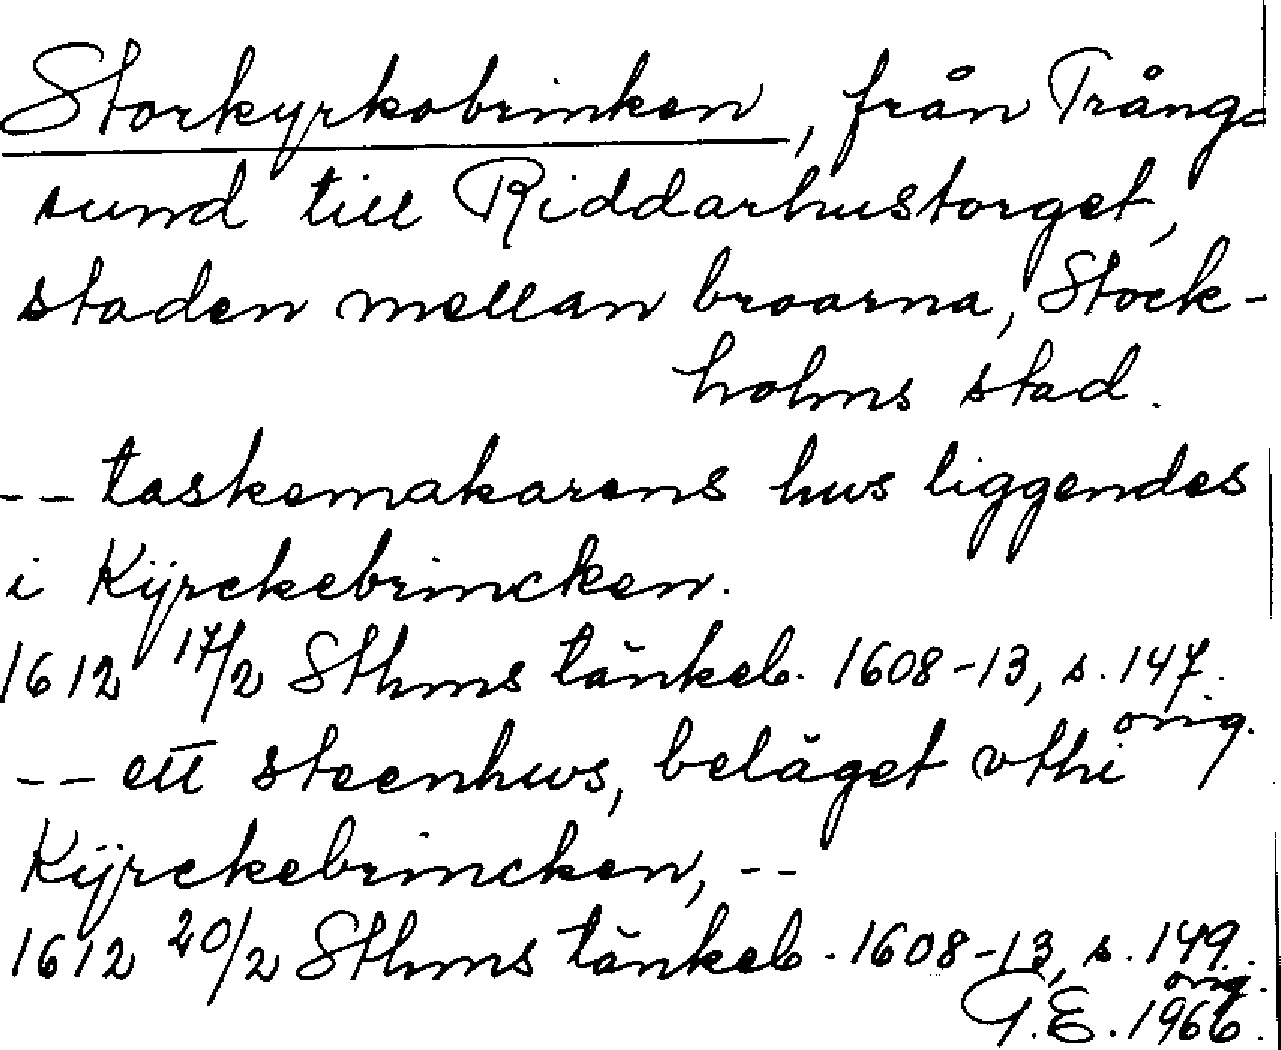 Storkyrkobrinken, från Trång=
sund till Riddarhustorget,
staden mellan broarna, Stock-
holms stad.
-- taskemakarens hus liggendes
i Kÿrckebrincken.
1612 17/2 Sthms tänkeb. 1608-13, s. 147.
orig.
-- ett steenhus, beläget vthi
Kÿrckebrincken, --
1612 20/2 Sthms tänkeb. 1608-13, s. 149.
orig.
G.E. 1966.